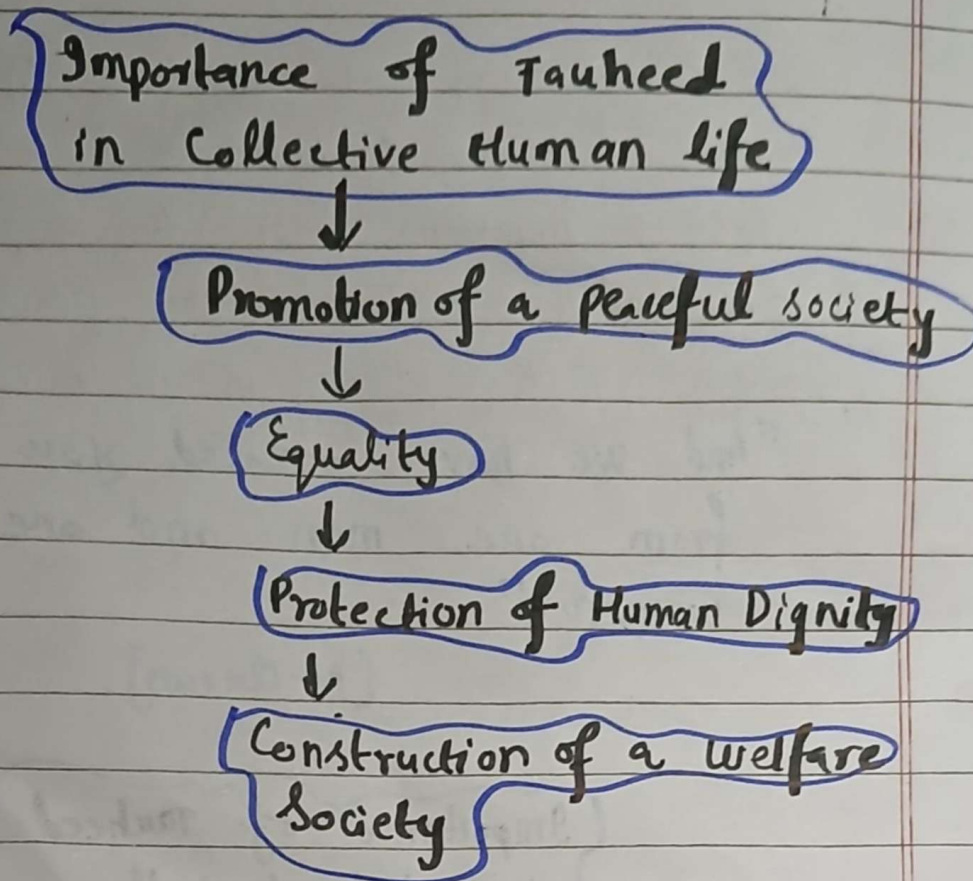 Importance of Tauheed
in Collective Human life
↓
Promotion of a peaceful society
↓
Equality
↓
Protection of Human Dignity
↓
Construction of a welfare
Society